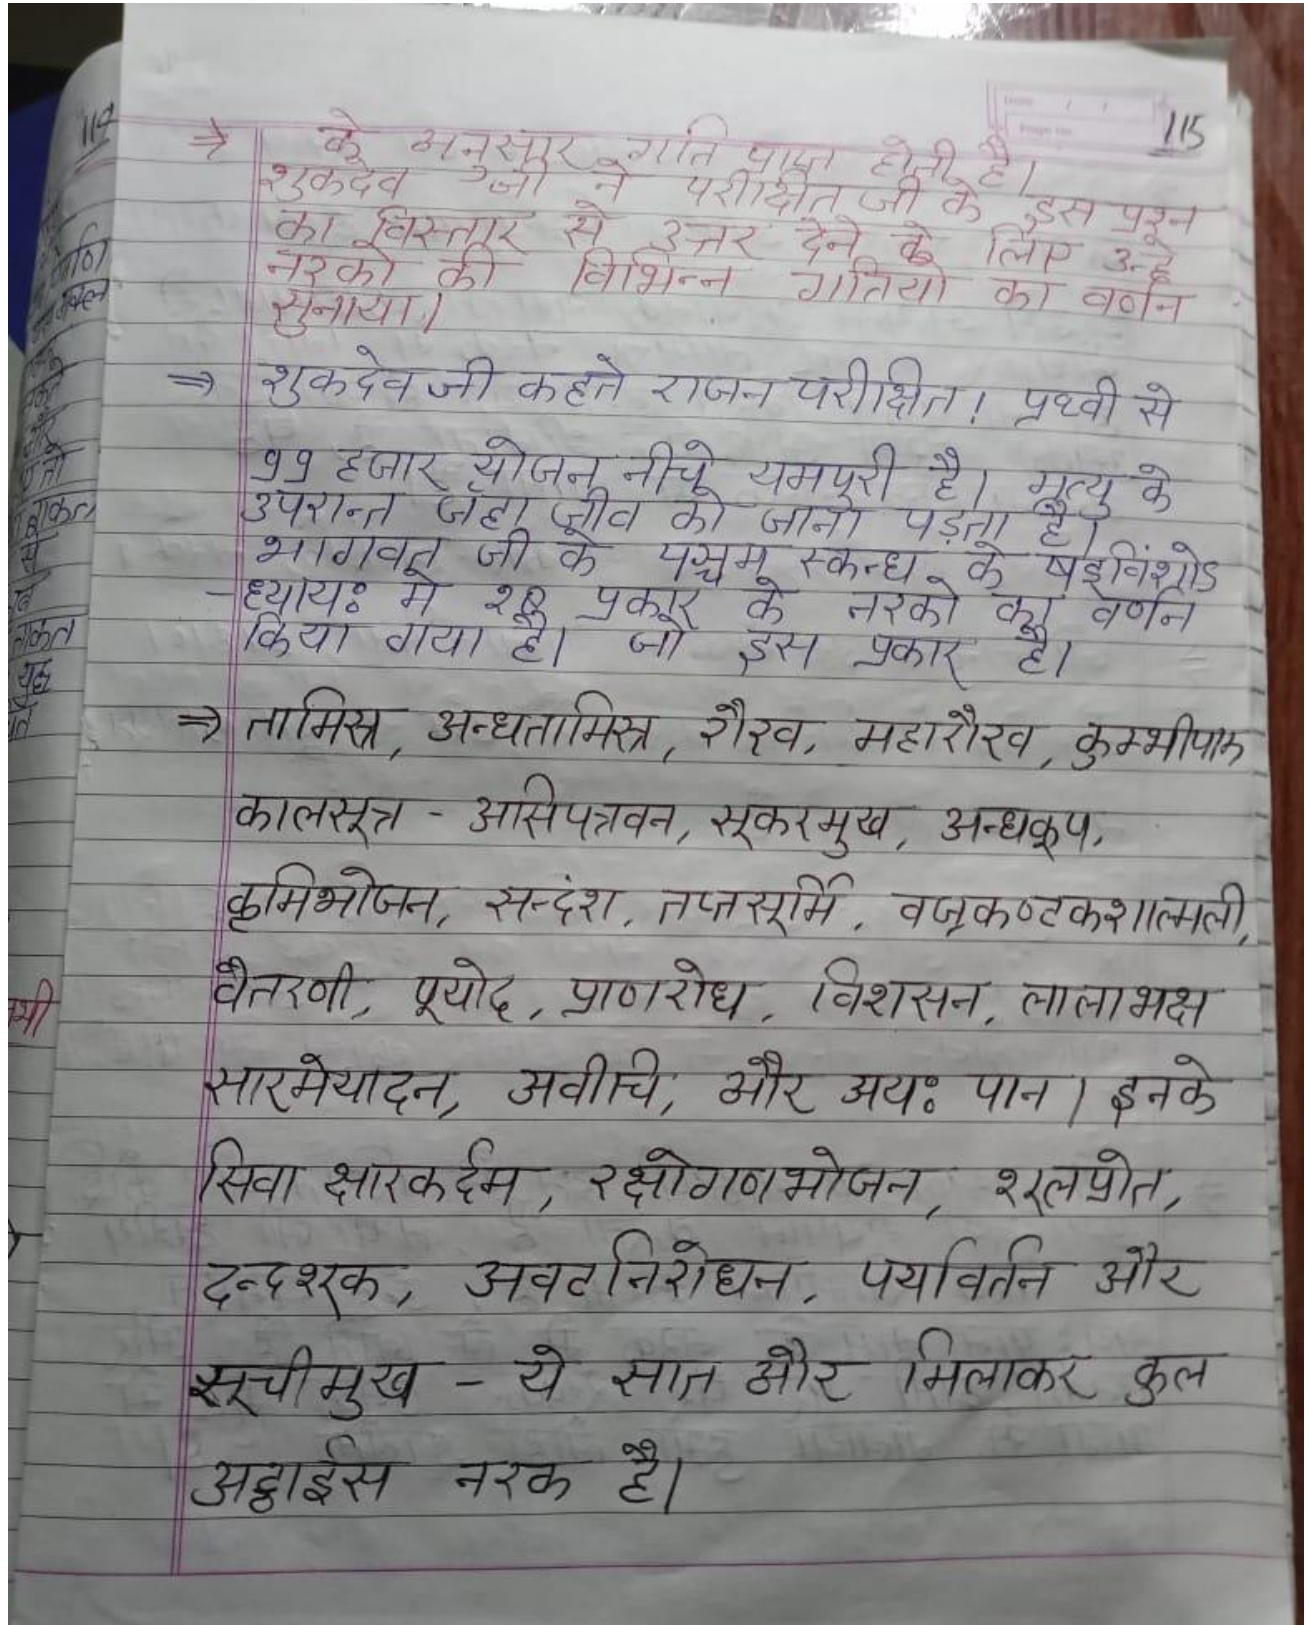 115
⇒ के अनुसार गति प्राप्त होती है।
शुकदेव जी ने परीक्षित जी के इस प्रश्न
का विस्तार से उत्तर देने के लिए उन्हे
नरको की विभिन्न गतियो का वर्णन
सुनाया।
⇒ शुकदेव जी कहते राजन परीक्षित! पृथ्वी से
११ हजार योजन नीचे यमपुरी है। मृत्यु के
उपरान्त जहा जीव को जाना पड़ता है।
भागवत जी के पञ्चम स्कन्ध के षडविंशोऽ
-ध्यायः मे २८ प्रकार के नरको का वर्णन
किया गया है। जो इस प्रकार है।
⇒ तामिस्त्र, अन्धतामिस्त्र, रौरव, महारौरव, कुम्भीपाक
कालसूत्र - असिपत्रवन, सूकरमुख, अन्धकूप,
कृमिभोजन, सन्दंश, तप्तसूर्मि, वज्रकण्टकशाल्मली,
वैतरणी, पूयोद, प्राणरोध, विशसन, लालाभक्ष
सारमेयादन, अवीचि, और अयः पान। इनके
सिवा क्षारकर्दम, रक्षोगणभोजन, शूलप्रोत,
दन्दशूक, अवटनिरोधन, पर्यावर्तन और
सूचीमुख - ये सात और मिलाकर कुल
अट्ठाईस नरक है।